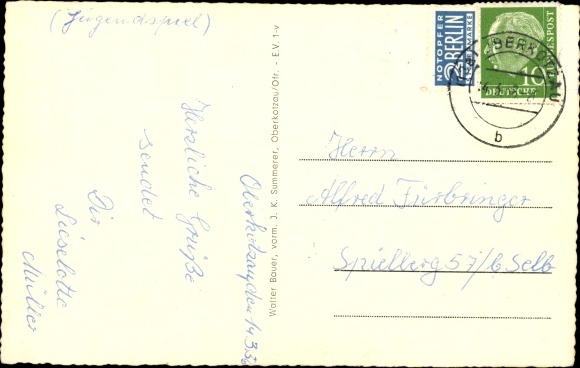 (Jugendspiel)
Oberkotzau, den 14.3.56
Herzliche Grüße
sendet
Dir
Lieselotte
Müller
Walter Bauer, vorm. J. K. Summerer, Oberkotzau/Ofr. - E.V. 1-v
NOTOPFER
2 BERLIN
STEUERMARKE
10
DEUTSCHE
BUNDESPOST
OBERKOTZAU
b
Herrn
Alfred Fürbringer
Spielberg 57/b. Selb